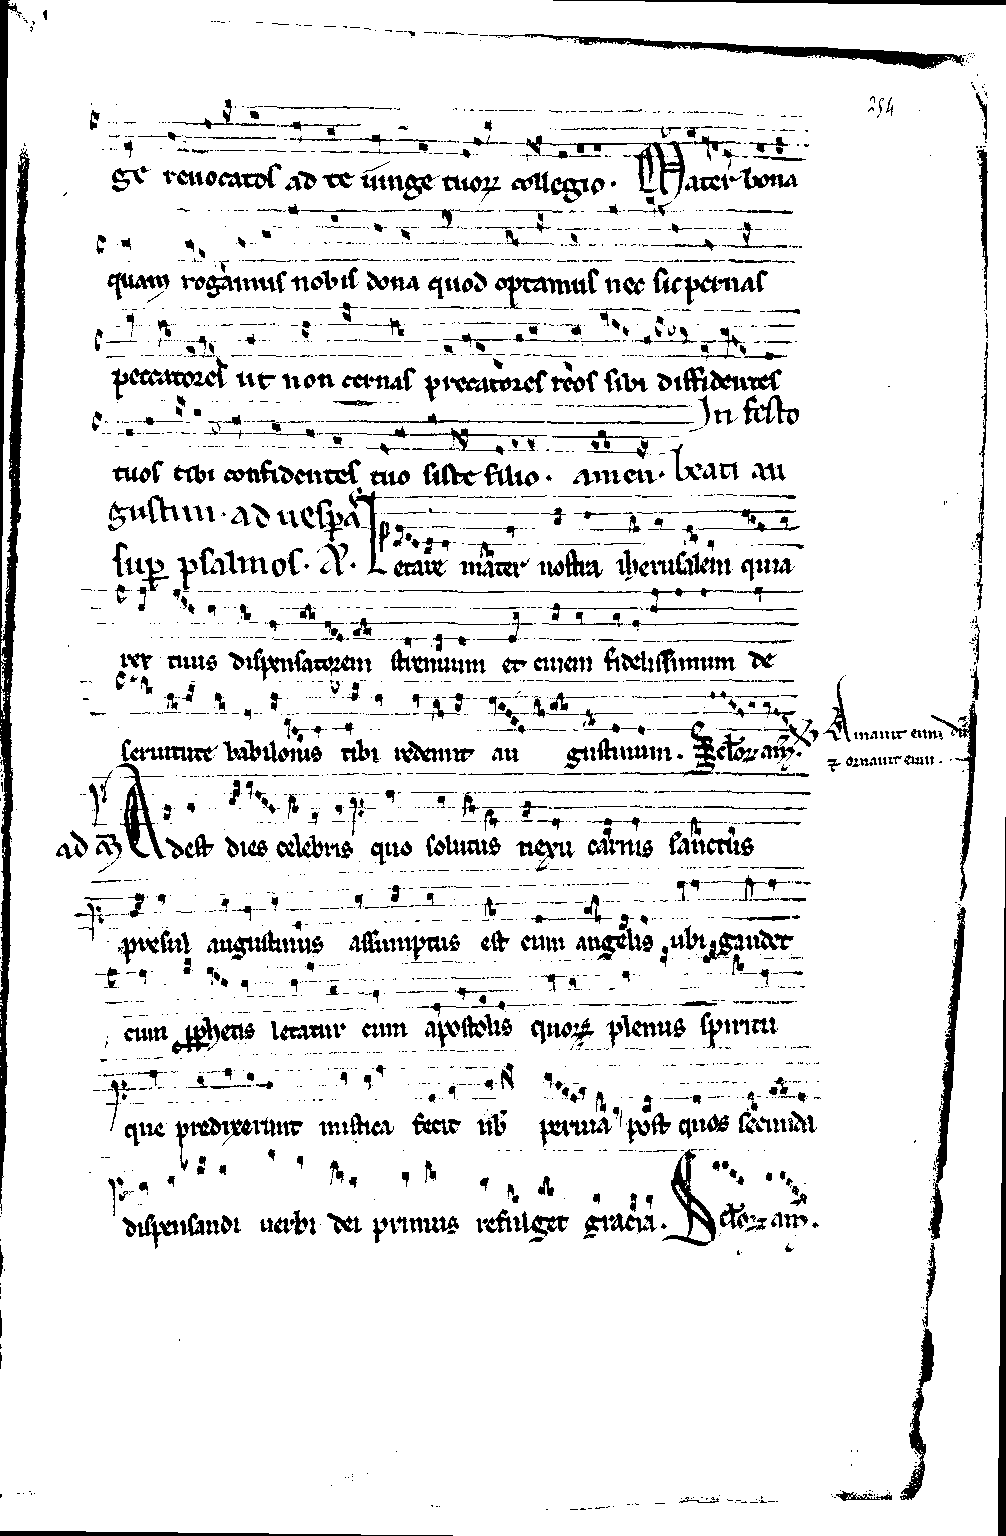 254
ge reuocatos ad te iunge tuoꝝ collegio. Mater bona
quam rogamus nobis dona quod optamus nec sic spernas
peccatores ut non cernas precatores reos sibi diffidentes
In festo
tuos tibi confidentes tuo siste filio. amen. beati au
gustini. ad uesꝑas
suꝑ psalmos. A. Letare mater nostra iherusalem quia
rex tuus dispensatorem strenuum et ciuem fidelissimum de
seruitute babilonis tibi redemit au gustinum. Scloꝝ am̄.
Amauit eum dn̄s
⁊ ornauit eum.
ad Adest dies celebris quo solutus nexu carnis sanctus
presul augustinus assumptus est cum angelis ubi gaudet
cum ꝓphetis letatur cum apostolis quoꝝ plenus spiritu
que predixerunt mistica fecit nob̄ peruia post quos secunda
dispensandi uerbi dei primus refulget gracia. Scloꝝ am̄.